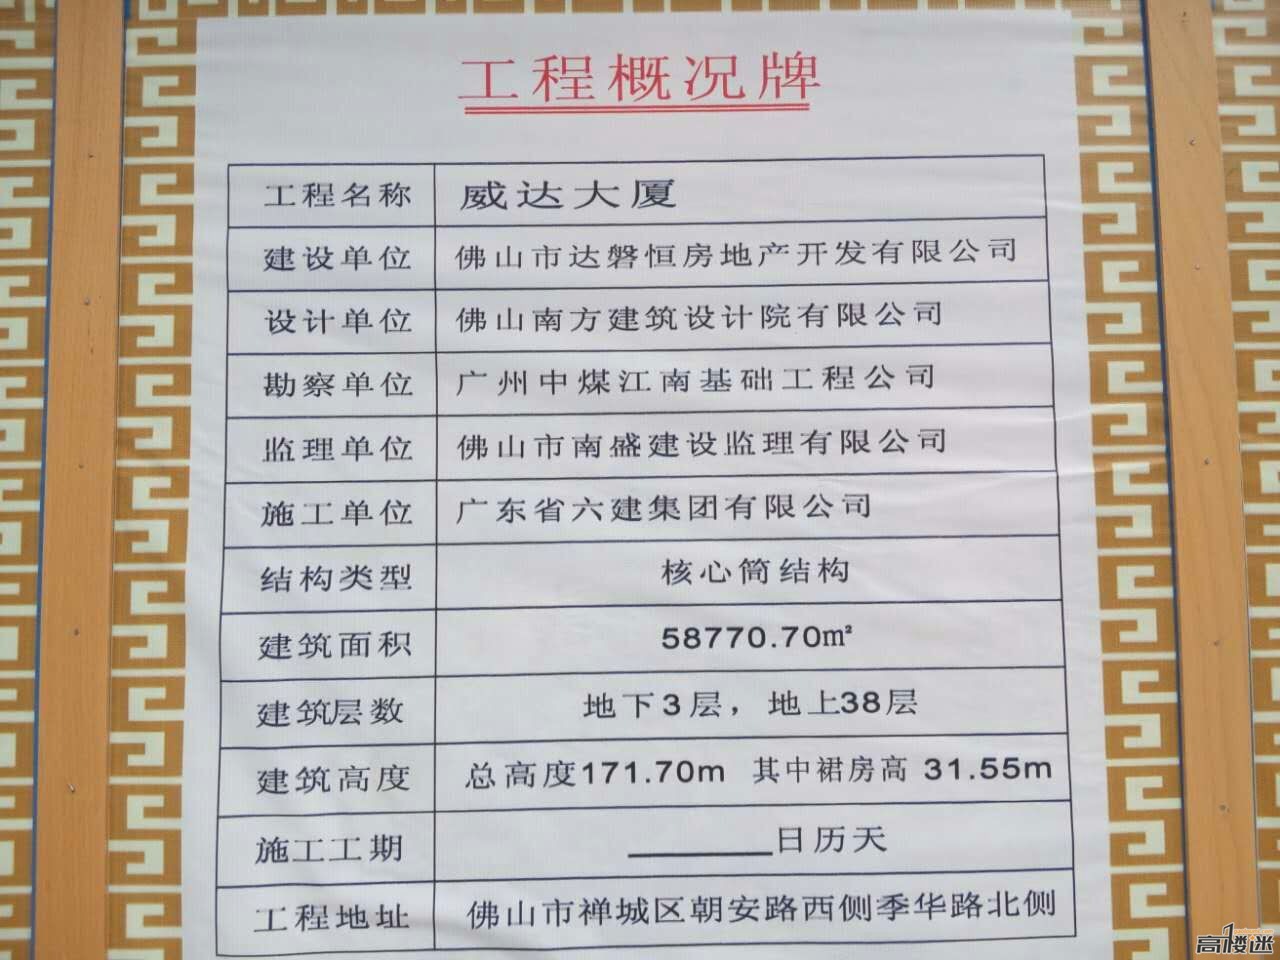 工程概况牌
工程名称 威达大厦
建设单位 佛山市达磐恒房地产开发有限公司
设计单位 佛山南方建筑设计院有限公司
勘察单位 广州中煤江南基础工程公司
监理单位 佛山市南盛建设监理有限公司
施工单位 广东省六建集团有限公司
结构类型 核心筒结构
建筑面积 58770.70㎡
建筑层数 地下3层，地上38层
建筑高度 总高度171.70m 其中裙房高 31.55m
施工工期 ________日历天
工程地址 佛山市禅城区朝安路西侧季华路北侧
高楼迷